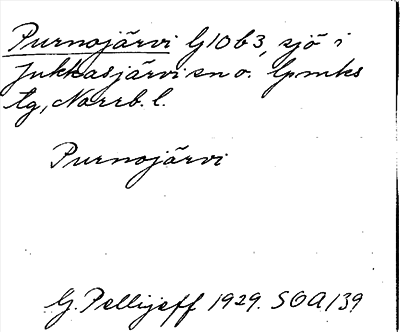 Purnojärvi G10b3, sjö i
Jukkasjärvi sn o. Lpmks
tg, Norrb. l.
Purnojärvi
G. Pellijeff 1929. SOA/39